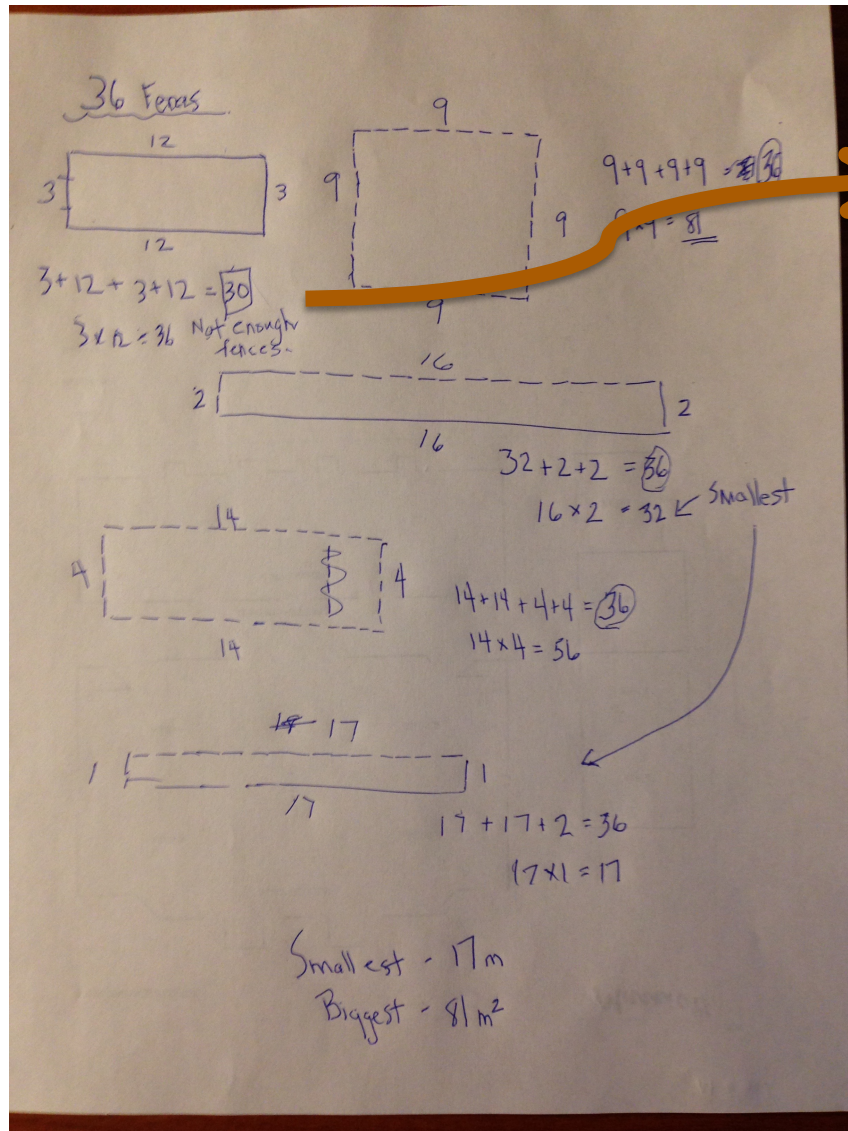 36 Fences
12
3
3
12
3+12+3+12 = 30
3 x 12 = 36 Not enough
fences.
9
9
9
9
9+9+9+9 = 36
= 81
16
2
2
16
32+2+2 = 36
16 x 2 = 32 Smallest
14
4
4
14
14+14+4+4 = 36
14 x 4 = 56
17
1
1
17
17+17+2 = 36
17 x 1 = 17
Smallest - 17m
Biggest - 81 m²